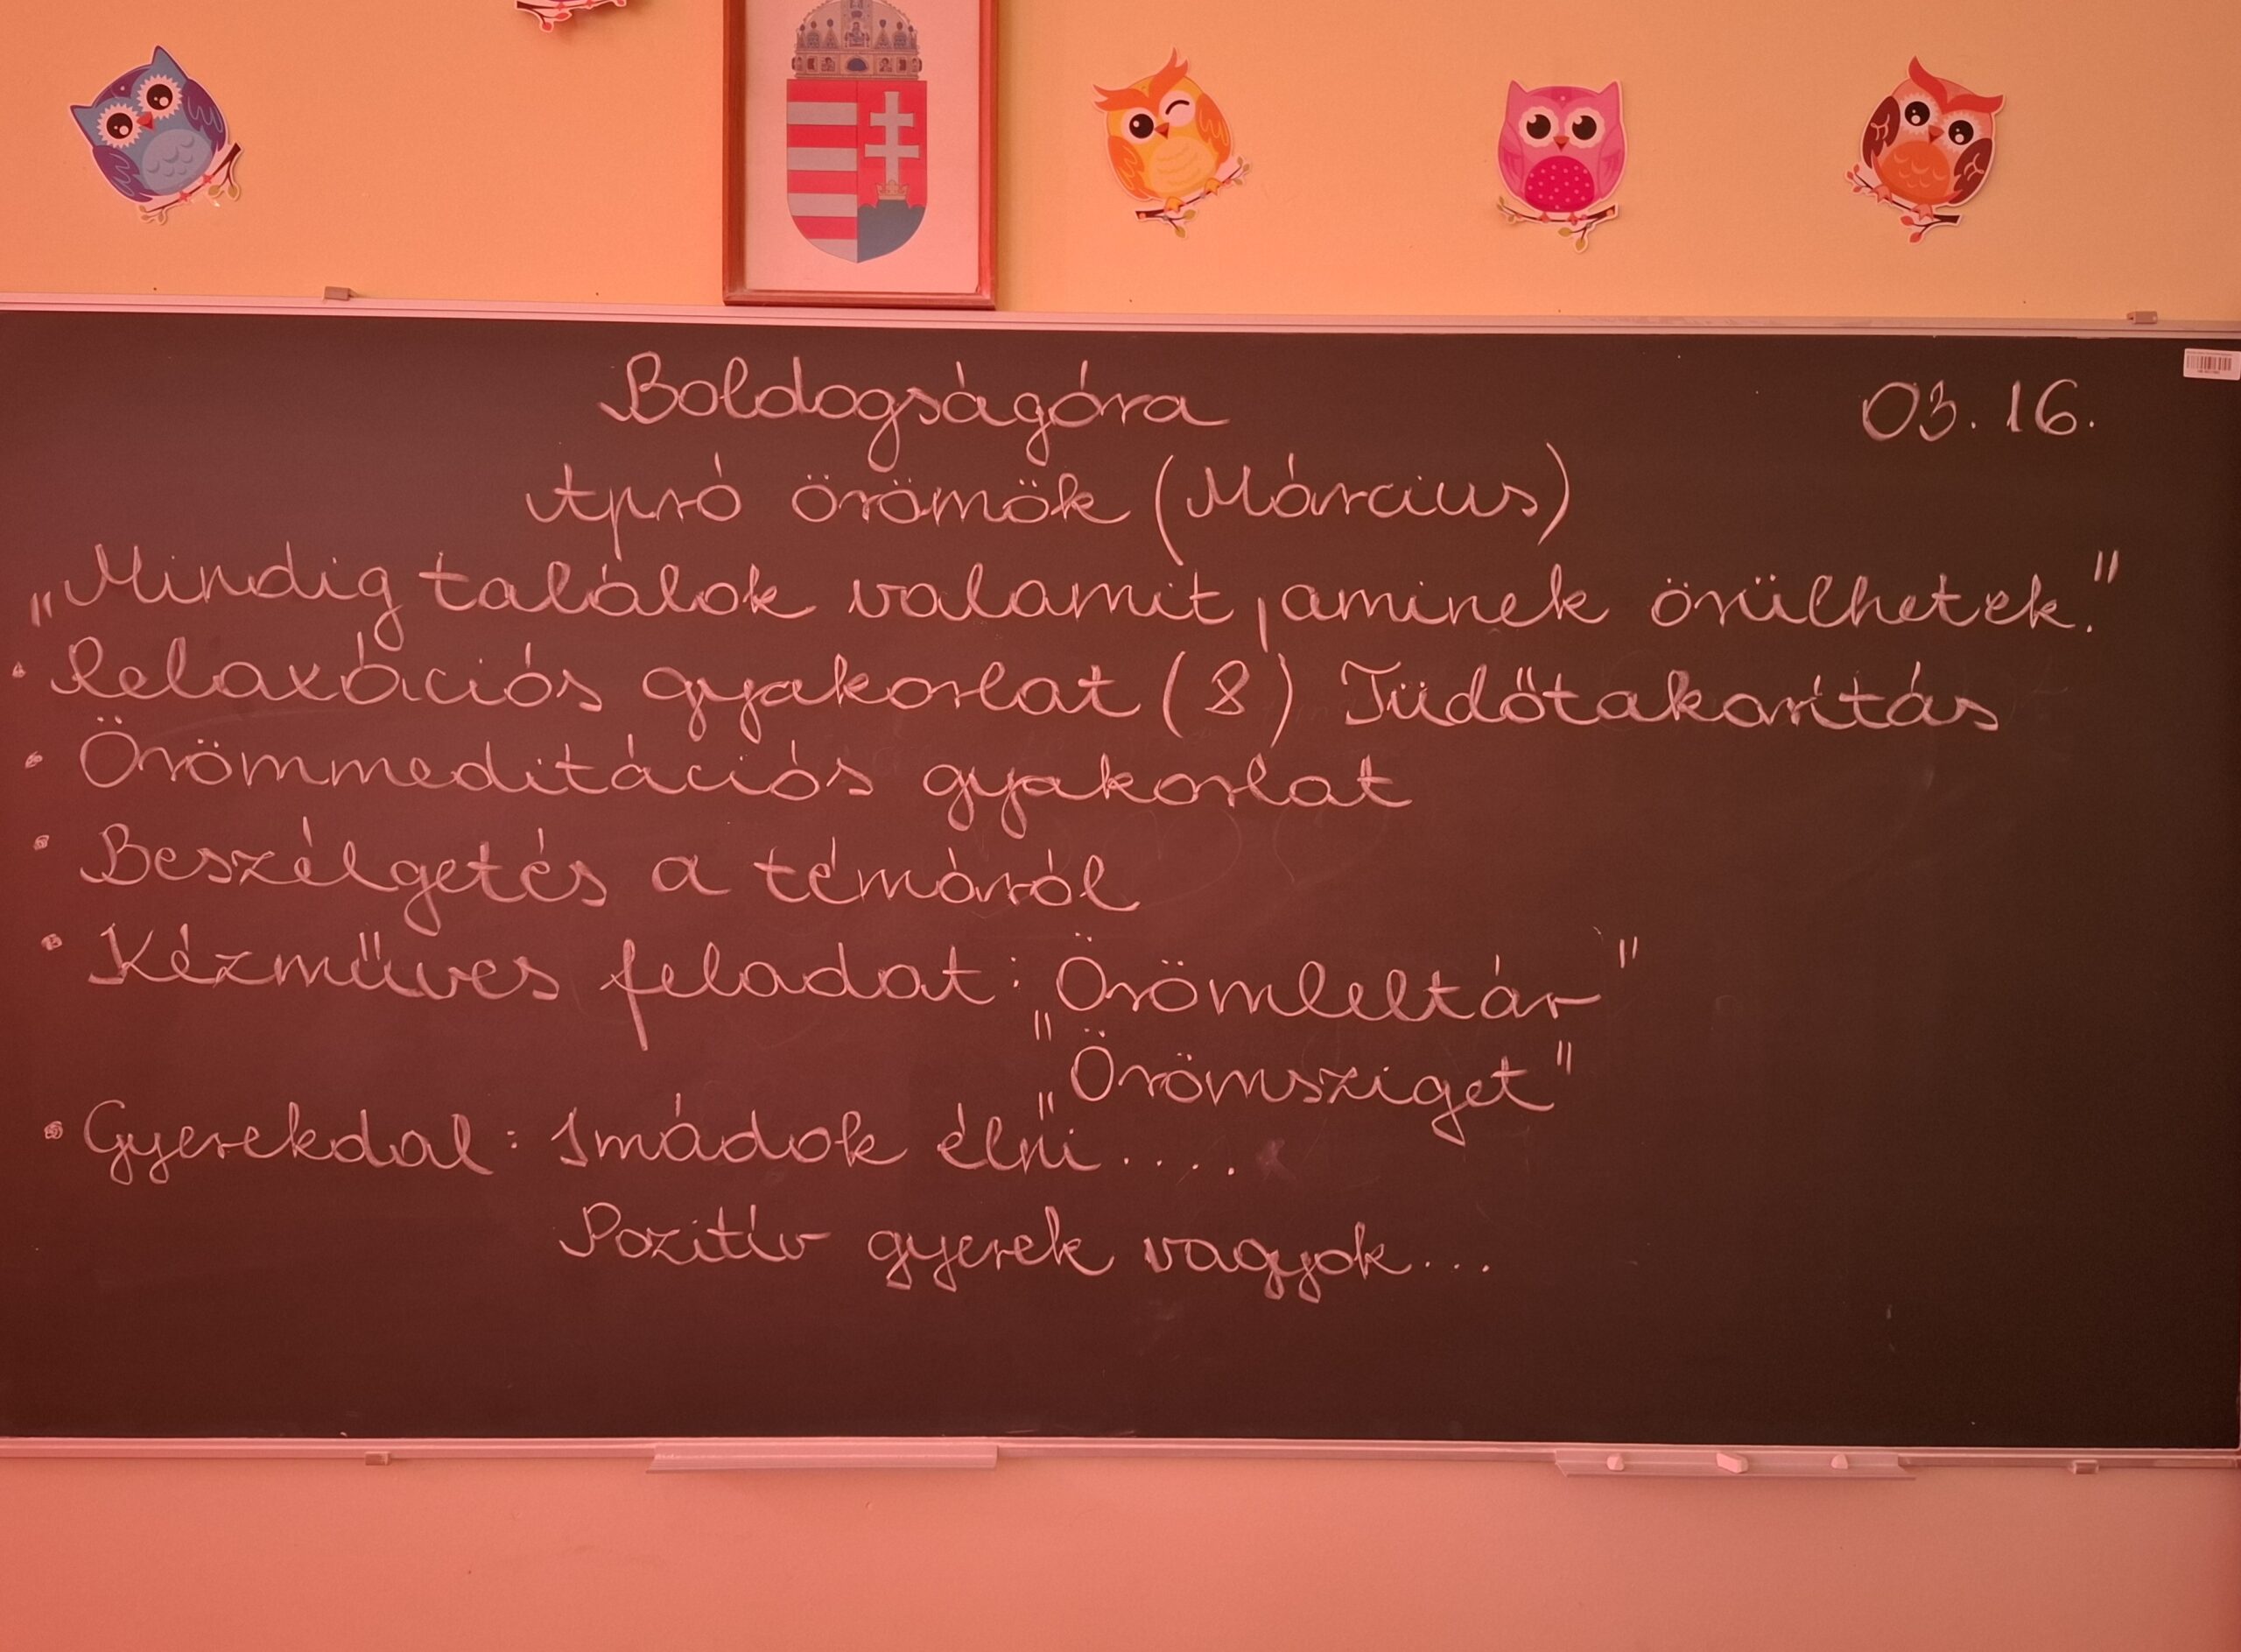 Boldogságóra 03.16.
Apró örömök (Március)
„Mindig találok valamit, aminek örülhetek."
• Relaxációs gyakorlat (8) Tüdőtakarítás
• Örömmeditációs gyakorlat
• Beszélgetés a témáról
• Kézműves feladat: „Örömleltár"
„Örömsziget"
• Gyerekdal: Imádok élni....
Pozitív gyerek vagyok...